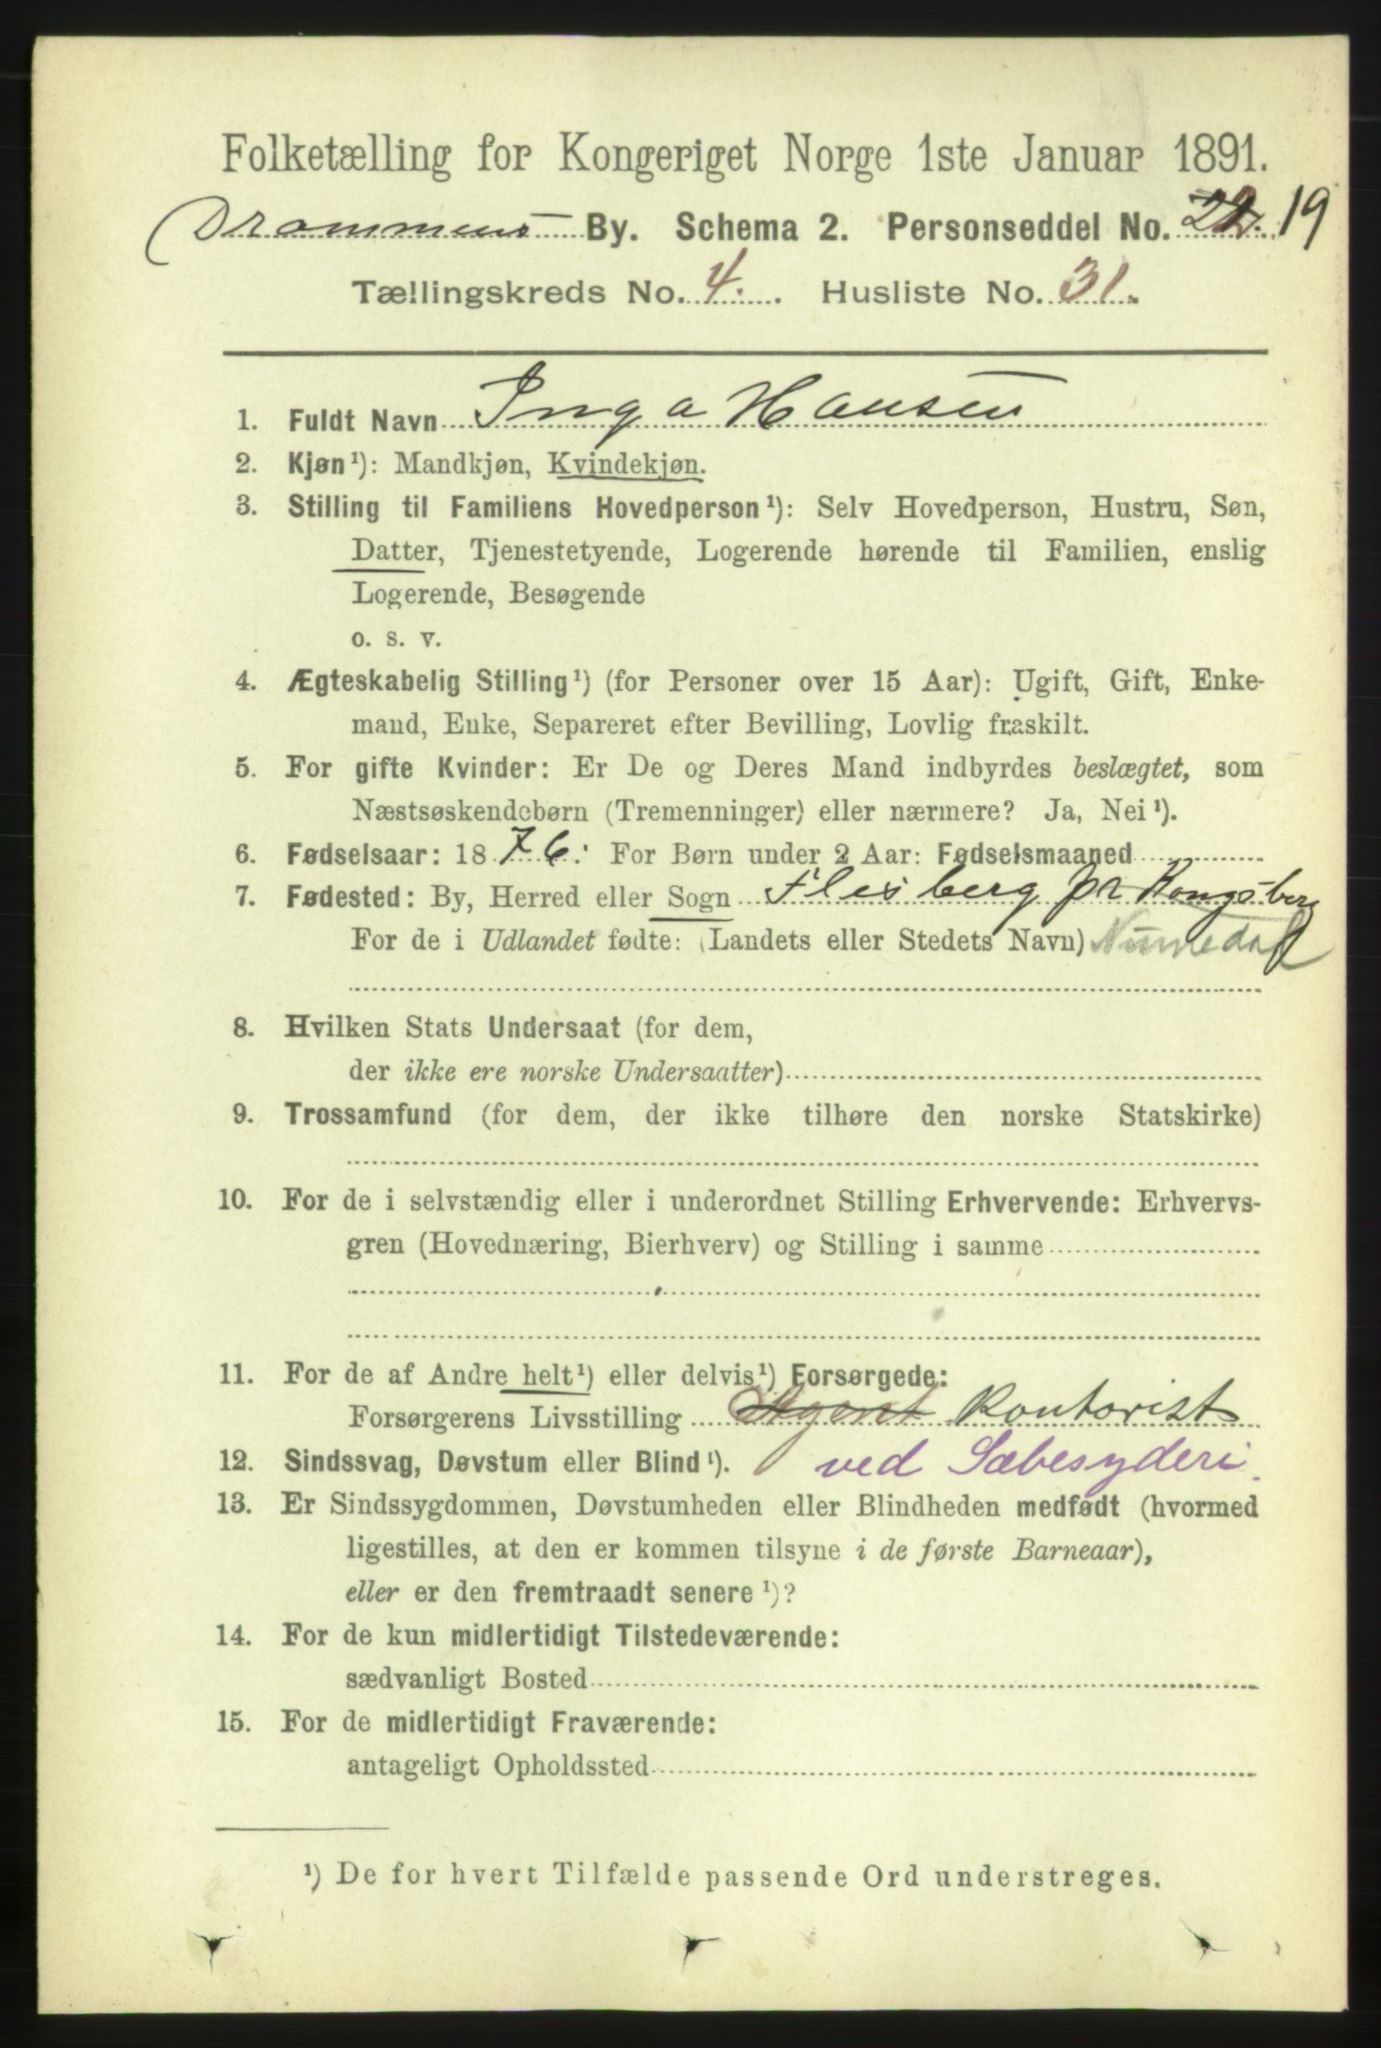 Folketælling for Kongeriget Norge 1ste Januar 1891.
Drammens By. Schema 2. Personseddel No. 22. 19
Tællingskreds No. 4. Husliste No. 31.
1. Fuldt Navn Inga Hansen
2. Kjøn¹): Mandkjøn, Kvindekjøn.
3. Stilling til Familiens Hovedperson¹): Selv Hovedperson, Hustru, Søn,
Datter, Tjenestetyende, Logerende hørende til Familien, enslig
Logerende, Besøgende
o. s. v.
4. Ægteskabelig Stilling¹) (for Personer over 15 Aar): Ugift, Gift, Enke-
mand, Enke, Separeret efter Bevilling, Lovlig fraskilt.
5. For gifte Kvinder: Er De og Deres Mand indbyrdes beslægtet, som
Næstsøskendebørn (Tremenninger) eller nærmere? Ja, Nei¹).
6. Fødselsaar: 1876. For Børn under 2 Aar: Fødselsmaaned
7. Fødested: By, Herred eller Sogn Flesberg pr Kongsberg
For de i Udlandet fødte: (Landets eller Stedets Navn) Numedal
8. Hvilken Stats Undersaat (for dem,
der ikke ere norske Undersaatter)
9. Trossamfund (for dem, der ikke tilhøre den norske Statskirke)
10. For de i selvstændig eller i underordnet Stilling Erhvervende: Erhvervs-
gren (Hovednæring, Bierhverv) og Stilling i samme
11. For de af Andre helt¹) eller delvis¹) Forsørgede:
Forsørgerens Livsstilling Agent Kontorist
12. Sindssvag, Døvstum eller Blind¹). ved Sæbesyderi.
13. Er Sindssygdommen, Døvstumheden eller Blindheden medfødt (hvormed
ligestilles, at den er kommen tilsyne i de første Barneaar),
eller er den fremtraadt senere¹)?
14. For de kun midlertidigt Tilstedeværende:
sædvanligt Bosted
15. For de midlertidigt Fraværende:
antageligt Opholdssted
¹) De for hvert Tilfælde passende Ord understreges.